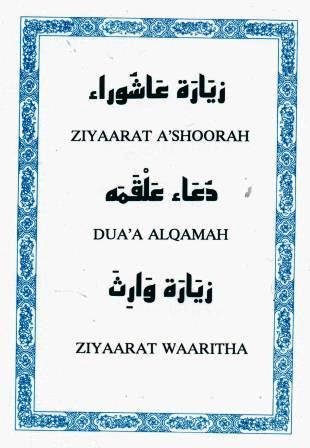 زيَارَة عَاشُوراء
ZIYAARAT A'SHOORAH
دُعَاء عَلْقَمَه
DUA'A ALQAMAH
زيَارَة وَارِثَ
ZIYAARAT WAARITHA